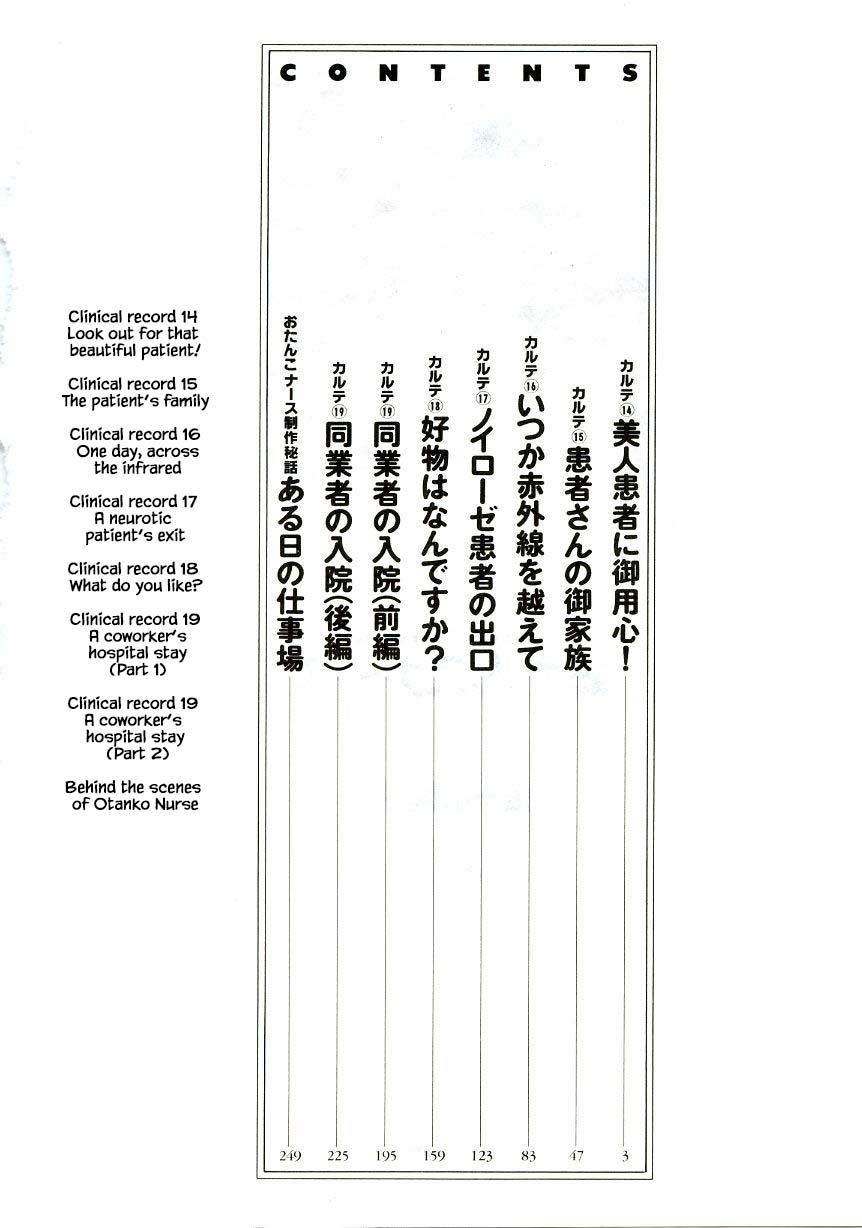 CONTENTS
カルテ⑭美人患者に御用心!
3
カルテ⑮患者さんの御家族
47
カルテ⑯いつか赤外線を越えて
83
カルテ⑰ノイローゼ患者の出口
123
カルテ⑱好物はなんですか?
159
カルテ⑲同業者の入院(前編)
195
カルテ⑲同業者の入院(後編)
225
おたんこナース制作秘話 ある日の仕事場
249
Clinical record 14
Look out for that
beautiful patient!
Clinical record 15
The patient's family
Clinical record 16
One day, across
the infrared
Clinical record 17
A neurotic
patient's exit
Clinical record 18
What do you like?
Clinical record 19
A coworker's
hospital stay
(Part 1)
Clinical record 19
A coworker's
hospital stay
(Part 2)
Behind the scenes
of Otanko Nurse